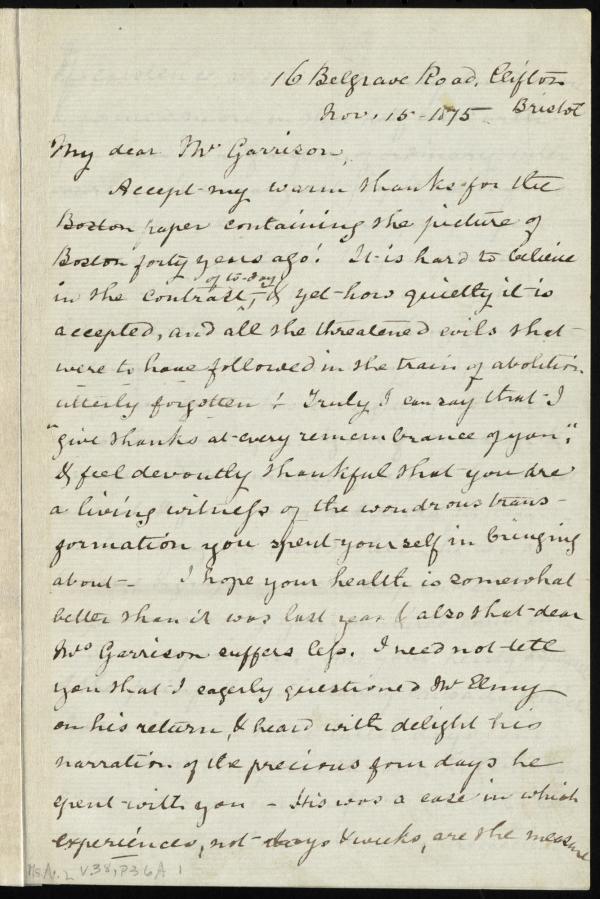 16 Belgrave Road, Clifton
Bristol
Nov. 15 - 1875
My dear Mr Garrison,
Accept my warm thanks for the
Boston paper containing the picture of
Boston forty years ago! It is hard to believe
of to-day
in the contrast, & yet how quietly it is
accepted, and all the threatened evils that
were to have followed in the train of abolition
utterly forgotten! Truly I can say that I
"give thanks at every remembrance of you",
& feel devoutly thankful that you are
a living witness of the wondrous trans-
formation you spent yourself in bringing
about - I hope your health is somewhat
better than it was last year & also that dear
Mrs Garrison suffers less. I need not tell
you that I eagerly questioned Mr Elmy
on his return, & heard with delight his
narration of the precious four days he
spent with you - His was a case in which
experiences, not days & weeks, are the measure
Ms.A.1.2 V.38, P36A 1